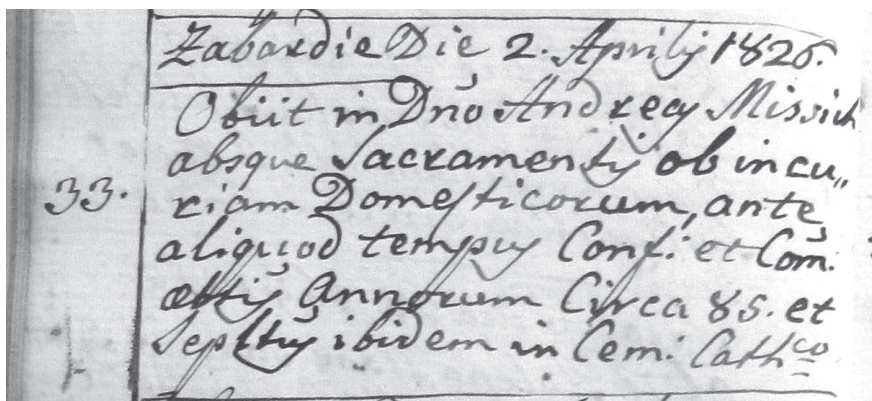 Zabardie Die 2. Aprilij 1826.
Obiit in Dño Andreas Missich
absque Sacramentis ob incu„
33. riam Domesticorum, ante
aliquod tempus Conf: et Com̃.
ætatis Annorum Circa 85. et
Sepltus ibidem in Cem: Cathco